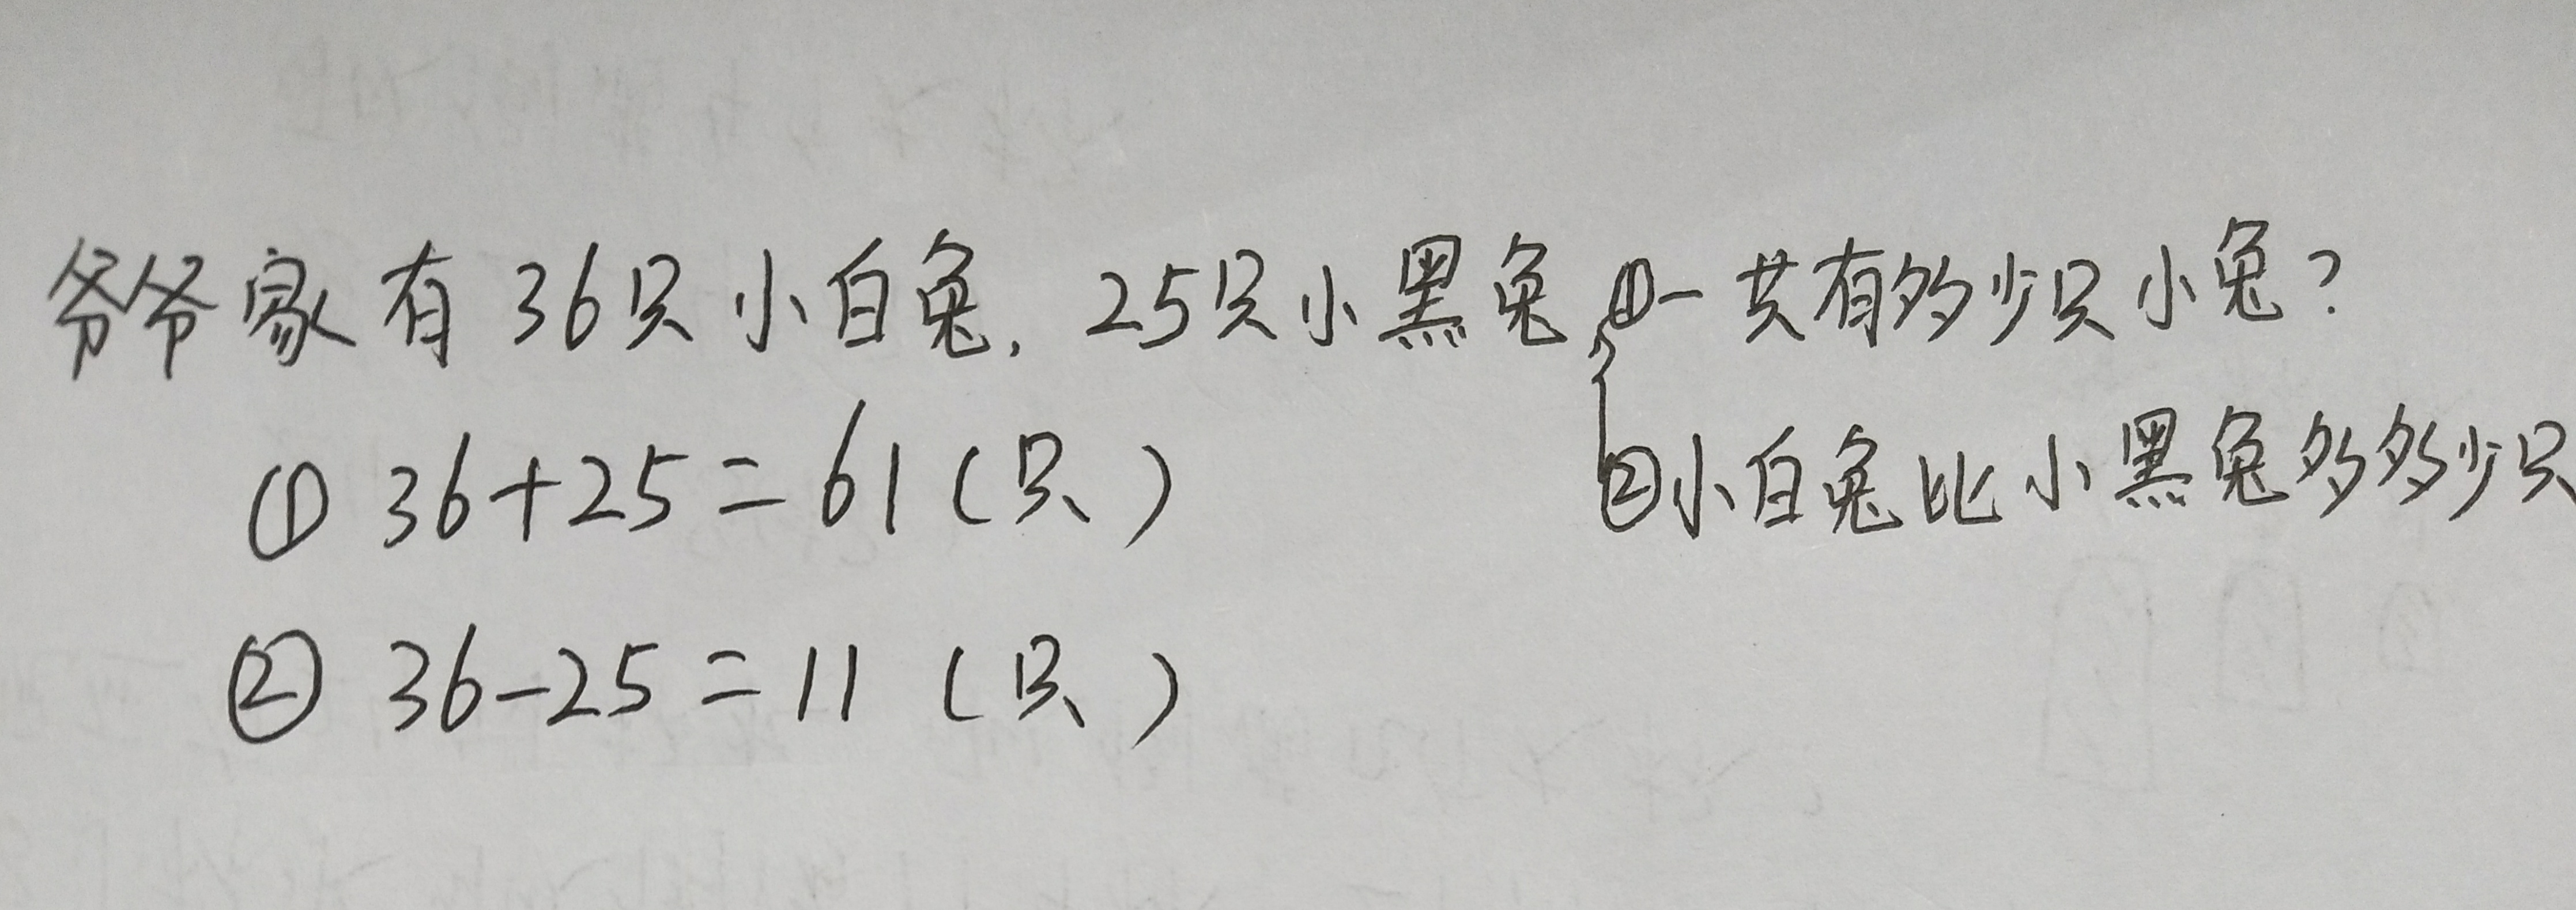 爷爷家有36只小白兔,25只小黑兔,①一共有多少只小兔?
②小白兔比小黑兔多多少只
① 36+25=61(只)
② 36-25=11(只)